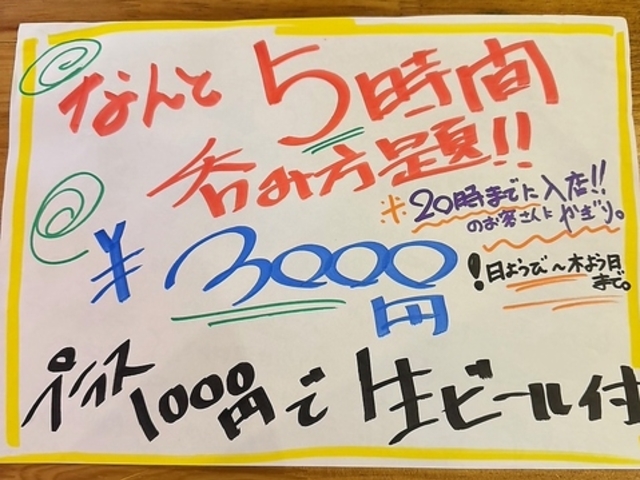 なんと 5時間
呑み方題!!
※20時までに入店!!
のお客さんにかぎり。
¥3000円
!日ようび〜木よう日
まで。
プラス1000円で生ビール付